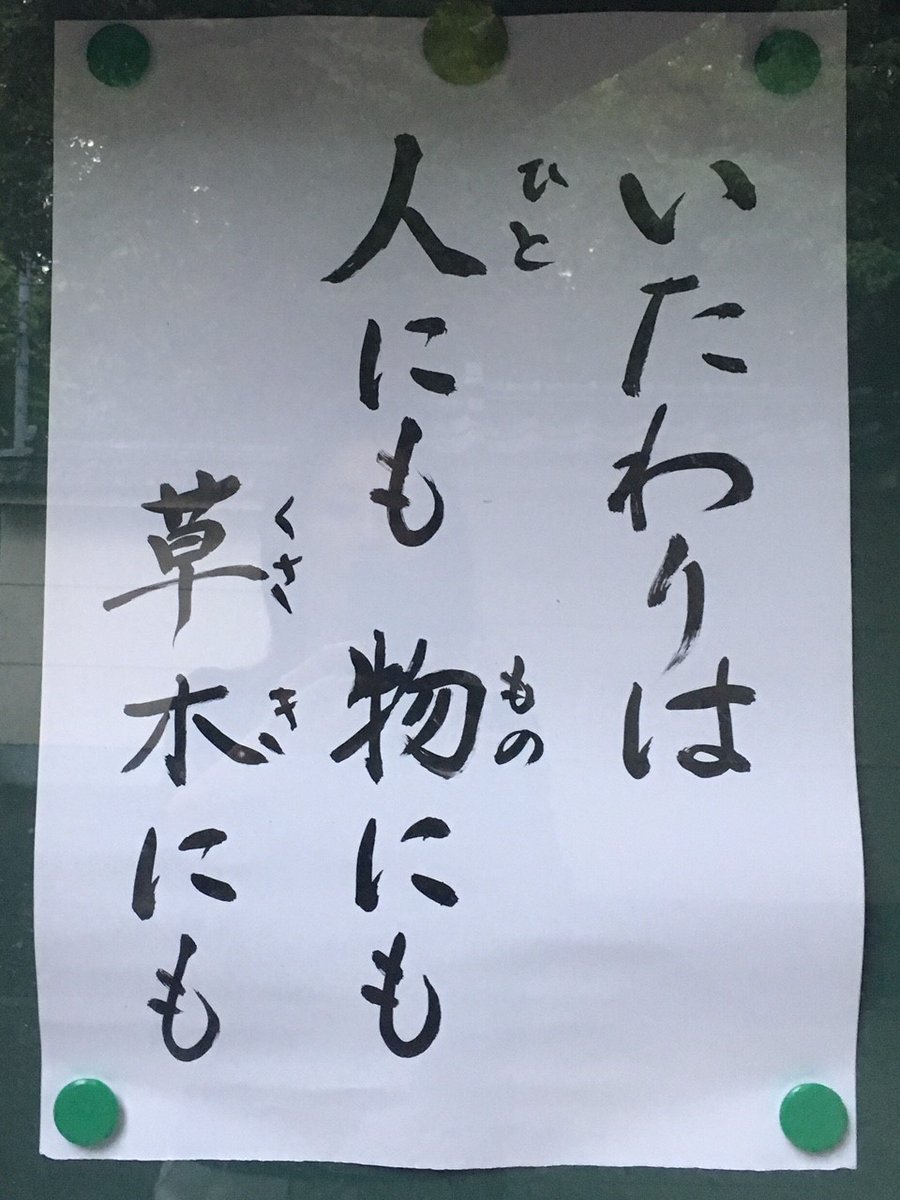 いたわりは
ひと もの
人にも 物にも
くさ き
草木にも